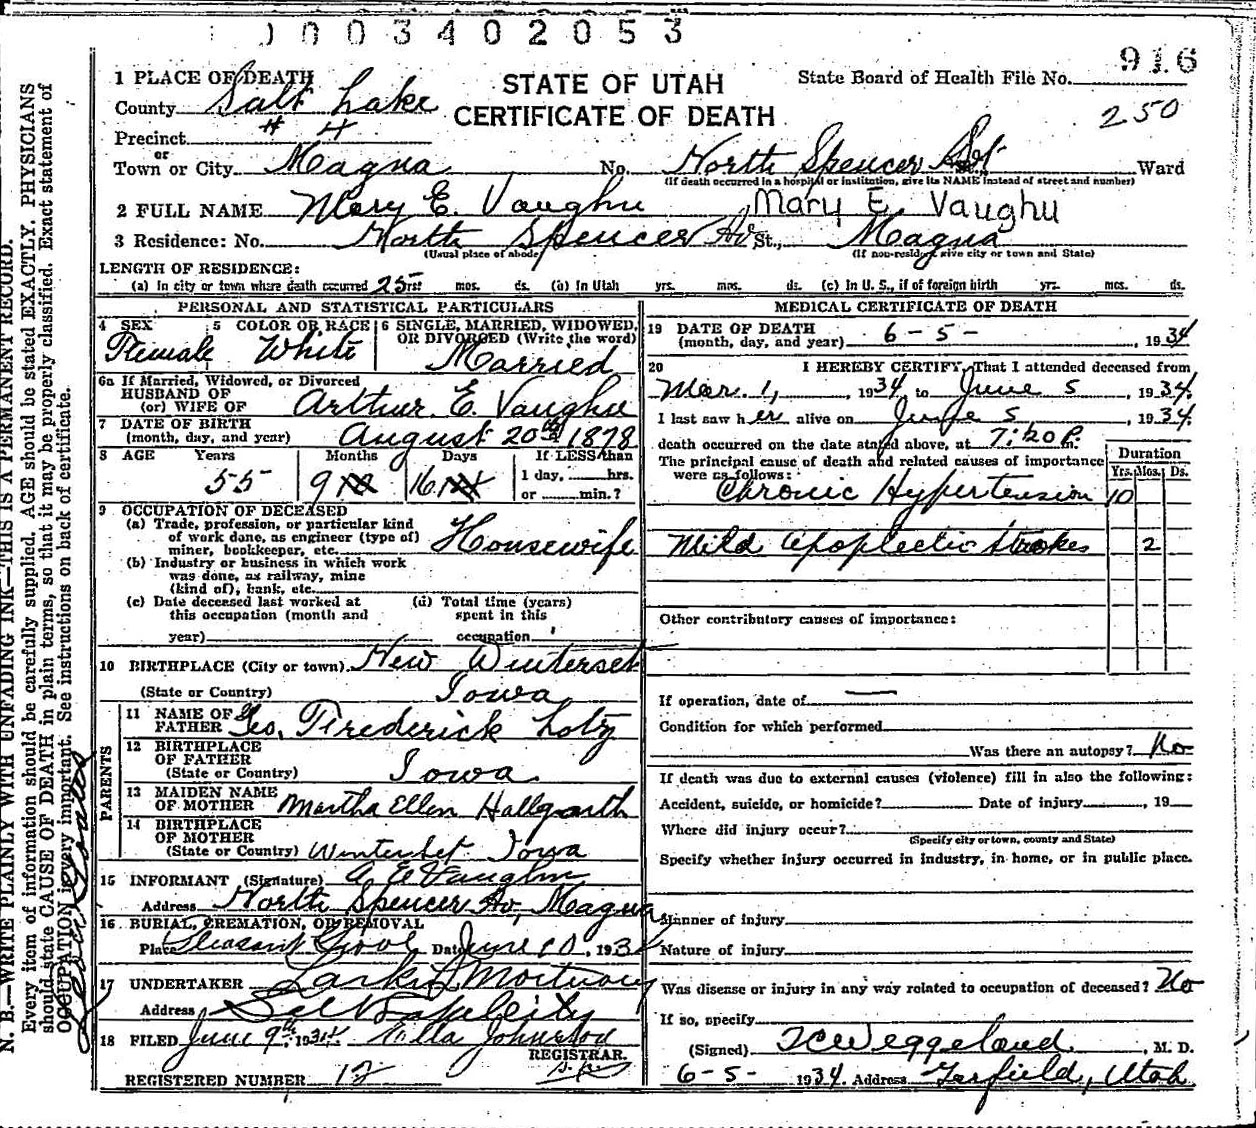 0003402053
916
1 PLACE OF DEATH
STATE OF UTAH
State Board of Health File No.
County Salt Lake
CERTIFICATE OF DEATH
250
Precinct # 4
or
Town or City Magna No. North Spencer Ward
(If death occurred in a hospital or institution, give its NAME instead of street and number)
2 FULL NAME Mary E. Vaughn Mary E Vaughn
3 Residence: No. North Spencer Av St., Magna
(Usual place of abode) (If non-resident, give city or town and State)
LENGTH OF RESIDENCE:
(a) In city or town where death occurred 25 yrs. mos. ds. (b) In Utah yrs. mos. ds. (c) In U. S., if of foreign birth yrs. mos. ds.
PERSONAL AND STATISTICAL PARTICULARS
4 SEX 5 COLOR OR RACE 6 SINGLE, MARRIED, WIDOWED,
OR DIVORCED (Write the word)
Female White Married
6a If Married, Widowed, or Divorced
HUSBAND OF
(or) WIFE OF Arthur E. Vaughn
7 DATE OF BIRTH
(month, day, and year) August 20th 1878
8 AGE Years Months Days If LESS than
55 9 16 1 day, hrs.
or min.?
9 OCCUPATION OF DECEASED
(a) Trade, profession, or particular kind
of work done, as engineer (type of)
miner, bookkeeper, etc. Housewife
(b) Industry or business in which work
was done, as railway, mine
(kind of), bank, etc.
(c) Date deceased last worked at (d) Total time (years)
this occupation (month and spent in this
year) occupation
10 BIRTHPLACE (City or town) New Winterset
(State or Country) Iowa
PARENTS
11 NAME OF
FATHER Geo. Frederick Lotz
12 BIRTHPLACE
OF FATHER
(State or Country) Iowa
13 MAIDEN NAME
OF MOTHER Martha Ellen Hallgarth
14 BIRTHPLACE
OF MOTHER
(State or Country) Winterset Iowa
15 INFORMANT (Signature) A E Vaughn
Address North Spencer Av, Magna
16 BURIAL, CREMATION, OR REMOVAL
Place Pleasant Grove Date June 10, 193
17 UNDERTAKER Larkin Mortuary
Address Salt Lake City
18 FILED June 9th 1934 Ella Johnston
REGISTRAR.
REGISTERED NUMBER 12
MEDICAL CERTIFICATE OF DEATH
19 DATE OF DEATH
(month, day, and year) 6-5- , 1934
20 I HEREBY CERTIFY, That I attended deceased from
Mar. 1, , 1934 to June 5 , 1934.
I last saw her alive on June 5 , 1934.
death occurred on the date stated above, at 7:20 P.m.
The principal cause of death and related causes of importance
were as follows:
Duration
Yrs. Mos. Ds.
Chronic Hypertension 10
Mild apoplectic strokes 2
Other contributory causes of importance:
If operation, date of —
Condition for which performed
Was there an autopsy? No
If death was due to external causes (violence) fill in also the following:
Accident, suicide, or homicide? Date of injury , 19
Where did injury occur?
(Specify city or town, county and State)
Specify whether injury occurred in industry, in home, or in public place.
Manner of injury
Nature of injury
Was disease or injury in any way related to occupation of deceased? No
If so, specify
(Signed) TC Weggeland , M. D.
6-5- 1934. Address Garfield, Utah
N. B.—WRITE PLAINLY WITH UNFADING INK—THIS IS A PERMANENT RECORD.
Every item of information should be carefully supplied. AGE should be stated EXACTLY. PHYSICIANS
should state CAUSE OF DEATH in plain terms, so that it may be properly classified. Exact statement of
OCCUPATION is very important. See instructions on back of certificate.